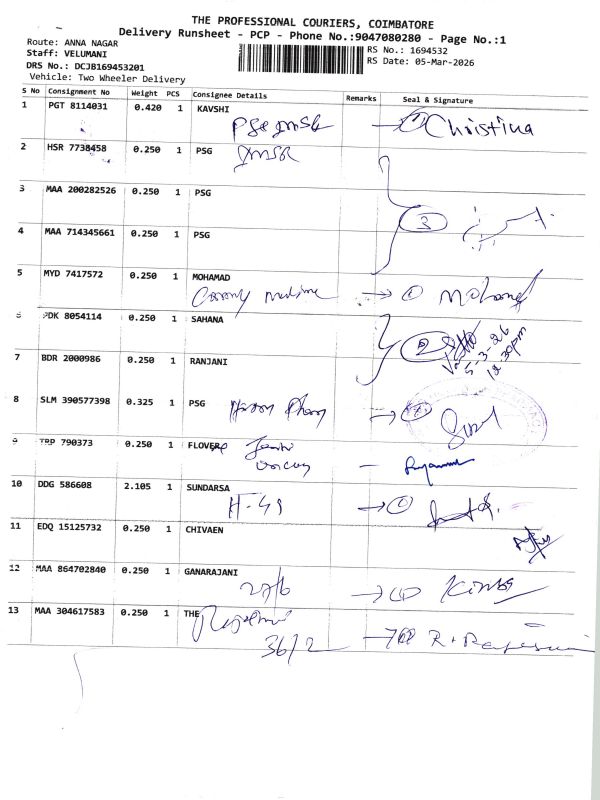 THE PROFESSIONAL COURIERS, COIMBATORE
Delivery Runsheet - PCP - Phone No.:9047080280 - Page No.:1
Route: ANNA NAGAR
Staff: VELUMANI
DRS No.: DCJB169453201
Vehicle: Two Wheeler Delivery
RS No.: 1694532
RS Date: 05-Mar-2026
S No Consignment No Weight PCS Consignee Details Remarks Seal & Signature
1 PGT 8114031 0.420 1 KAVSHI
Christina
2 HSR 7738458 0.250 1 PSG
3 MAA 200282526 0.250 1 PSG
3
4 MAA 714345661 0.250 1 PSG
5 MYD 7417572 0.250 1 MOHAMAD
Mohamed
6 PDK 8054114 0.250 1 SAHANA
2
5-3-26
12.30pm
7 BDR 2000986 0.250 1 RANJANI
8 SLM 390577398 0.325 1 PSG
9 TRP 790373 0.250 1 FLOVER
10 DDG 586608 2.105 1 SUNDARSA
H-49
11 EDQ 15125732 0.250 1 CHIVAEN
12 MAA 864702840 0.250 1 GANARAJANI
13 MAA 304617583 0.250 1 THE
36/2